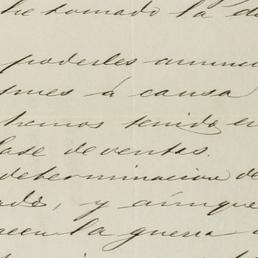 he tomado la d
poderles anunc
pues á causa
hemos tenido en
lase de ventas.
determinacion de
ado, y aunque
reen la guerra